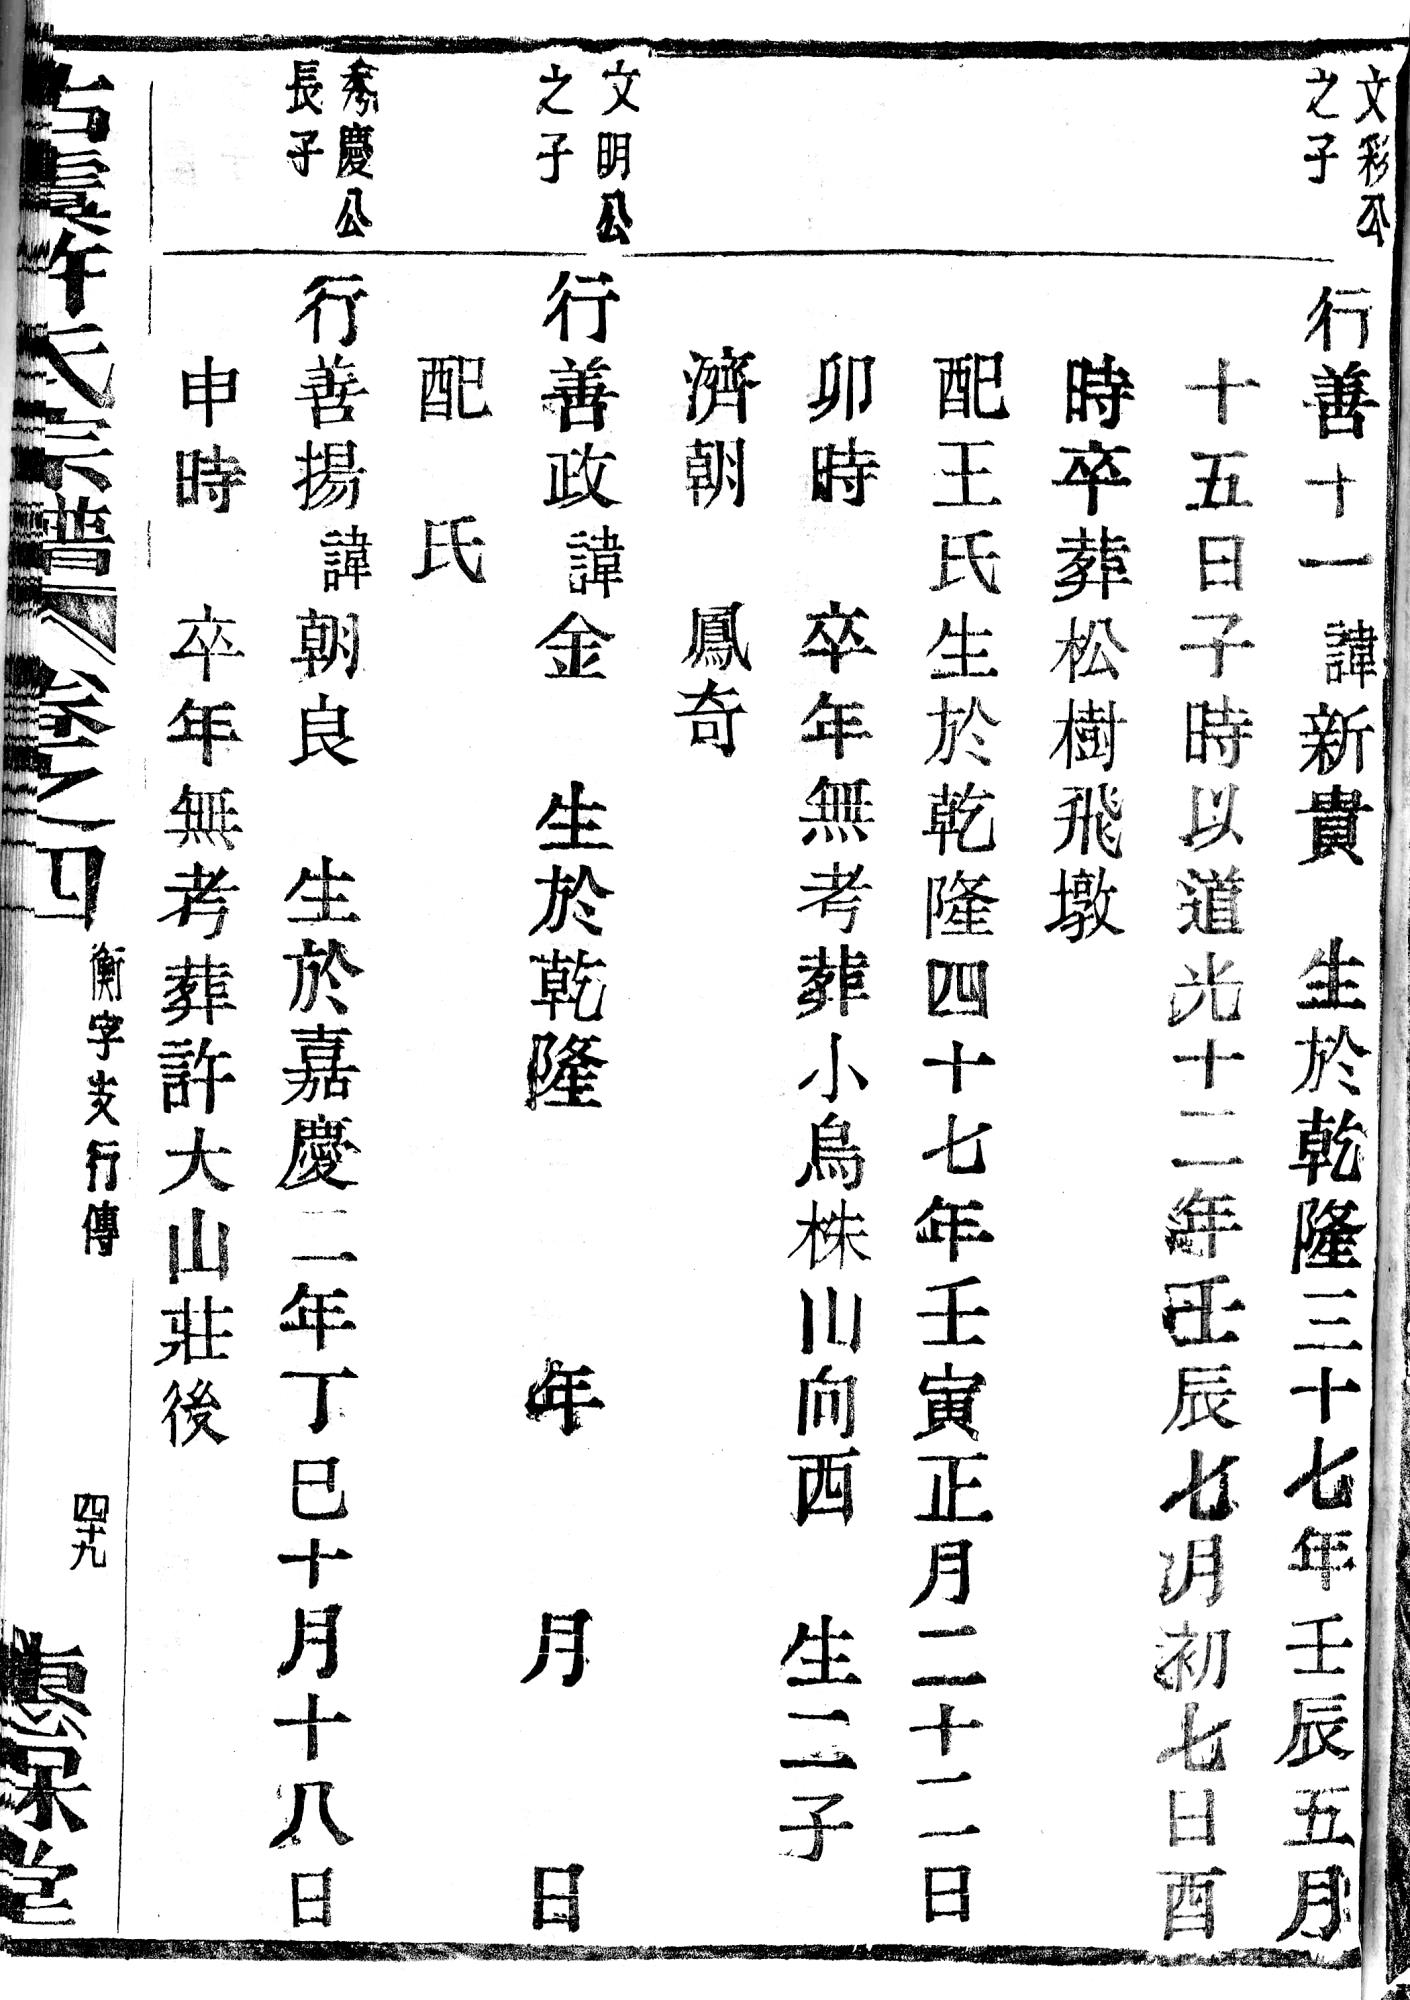 文彩公
之子
行善十一諱新貴　生於乾隆三十七年壬辰五月
十五日子時以道光十二年壬辰七月初七日酉
時卒葬松樹飛墩
配王氏生於乾隆四十七年壬寅正月二十二日
卯時　卒年無考葬小烏株山向西　生二子
濟朝　鳳奇
文明公
之子
行善政諱金　生於乾隆　　年　　月　　日
配　氏
秀慶公
長子
行善揚諱朝良　生於嘉慶二年丁巳十月十八日
申時　卒年無考葬許大山莊後
古虞許氏宗譜　卷之四　衡字支行傳　四十九